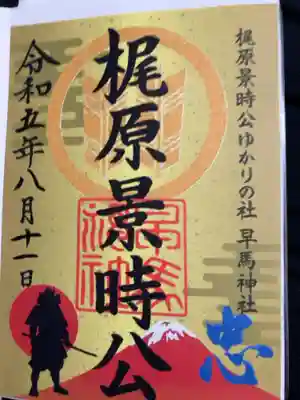 梶原景時公ゆかりの社 早馬神社
梶原景時公
早馬神社
忠
令和五年八月十一日